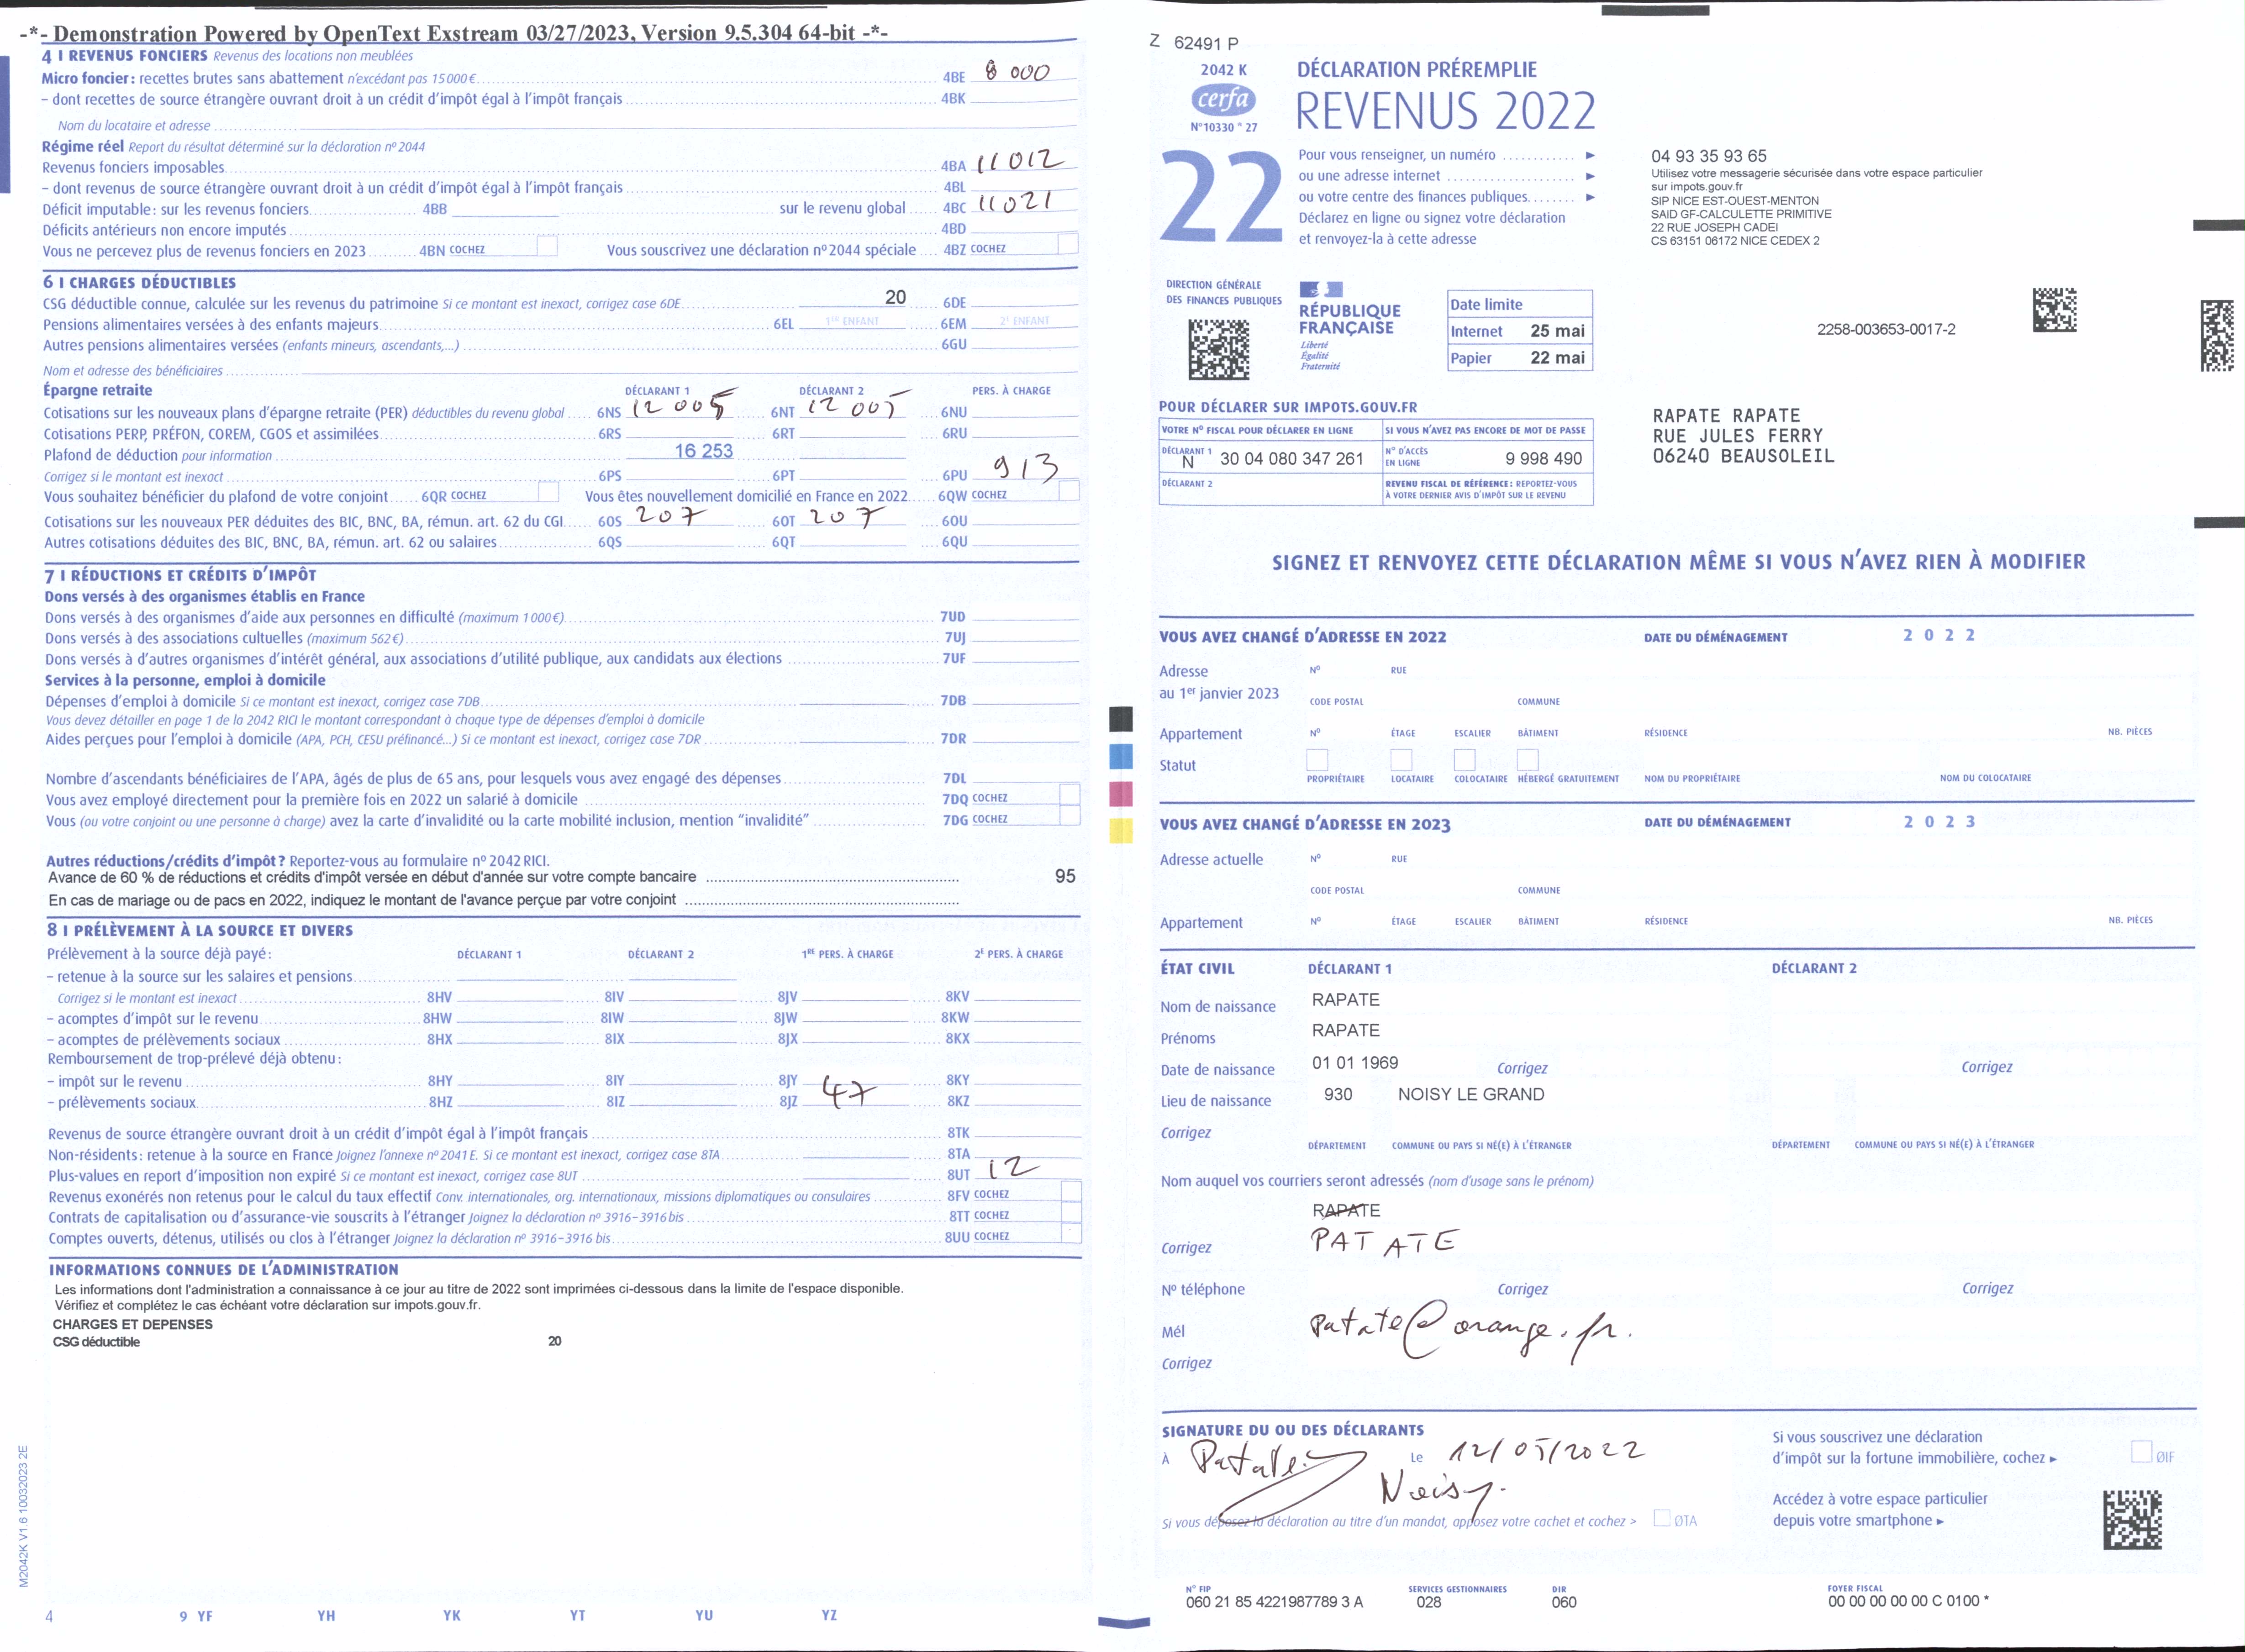 -*- Demonstration Powered by OpenText Exstream 03/27/2023, Version 9.5.304 64-bit -*-
4 I REVENUS FONCIERS Revenus des locations non meublées
Micro foncier : recettes brutes sans abattement n'excédant pas 15 000 € 4BE 8 000
– dont recettes de source étrangère ouvrant droit à un crédit d'impôt égal à l'impôt français 4BK
Nom du locataire et adresse
Régime réel Report du résultat déterminé sur la déclaration nº 2044
Revenus fonciers imposables 4BA 11 012
– dont revenus de source étrangère ouvrant droit à un crédit d'impôt égal à l'impôt français 4BL
Déficit imputable : sur les revenus fonciers 4BB sur le revenu global 4BC 11 021
Déficits antérieurs non encore imputés 4BD
Vous ne percevez plus de revenus fonciers en 2023 4BN COCHEZ Vous souscrivez une déclaration nº 2044 spéciale 4BZ COCHEZ
6 I CHARGES DÉDUCTIBLES
CSG déductible connue, calculée sur les revenus du patrimoine Si ce montant est inexact, corrigez case 6DE 20 6DE
Pensions alimentaires versées à des enfants majeurs 6EL 1ER ENFANT 6EM 2E ENFANT
Autres pensions alimentaires versées (enfants mineurs, ascendants,...) 6GU
Nom et adresse des bénéficiaires
Épargne retraite DÉCLARANT 1 DÉCLARANT 2 PERS. À CHARGE
Cotisations sur les nouveaux plans d'épargne retraite (PER) déductibles du revenu global 6NS 12 005 6NT 12 005 6NU
Cotisations PERP, PRÉFON, COREM, CGOS et assimilées 6RS 6RT 6RU
Plafond de déduction pour information 16 253
Corrigez si le montant est inexact 6PS 6PT 6PU 913
Vous souhaitez bénéficier du plafond de votre conjoint 6QR COCHEZ Vous êtes nouvellement domicilié en France en 2022 6QW COCHEZ
Cotisations sur les nouveaux PER déduites des BIC, BNC, BA, rémun. art. 62 du CGI 6OS 207 6OT 207 6OU
Autres cotisations déduites des BIC, BNC, BA, rémun. art. 62 ou salaires 6QS 6QT 6QU
7 I RÉDUCTIONS ET CRÉDITS D'IMPÔT
Dons versés à des organismes établis en France
Dons versés à des organismes d'aide aux personnes en difficulté (maximum 1 000 €) 7UD
Dons versés à des associations cultuelles (maximum 562 €) 7UJ
Dons versés à d'autres organismes d'intérêt général, aux associations d'utilité publique, aux candidats aux élections 7UF
Services à la personne, emploi à domicile
Dépenses d'emploi à domicile Si ce montant est inexact, corrigez case 7DB 7DB
Vous devez détailler en page 1 de la 2042 RICI le montant correspondant à chaque type de dépenses d'emploi à domicile
Aides perçues pour l'emploi à domicile (APA, PCH, CESU préfinancé...) Si ce montant est inexact, corrigez case 7DR 7DR
Nombre d'ascendants bénéficiaires de l'APA, âgés de plus de 65 ans, pour lesquels vous avez engagé des dépenses 7DL
Vous avez employé directement pour la première fois en 2022 un salarié à domicile 7DQ COCHEZ
Vous (ou votre conjoint ou une personne à charge) avez la carte d'invalidité ou la carte mobilité inclusion, mention "invalidité" 7DG COCHEZ
Autres réductions/crédits d'impôt ? Reportez-vous au formulaire nº 2042 RICI.
Avance de 60 % de réductions et crédits d'impôt versée en début d'année sur votre compte bancaire 95
En cas de mariage ou de pacs en 2022, indiquez le montant de l'avance perçue par votre conjoint
8 I PRÉLÈVEMENT À LA SOURCE ET DIVERS
Prélèvement à la source déjà payé : DÉCLARANT 1 DÉCLARANT 2 1RE PERS. À CHARGE 2E PERS. À CHARGE
– retenue à la source sur les salaires et pensions
Corrigez si le montant est inexact 8HV 8IV 8JV 8KV
– acomptes d'impôt sur le revenu 8HW 8IW 8JW 8KW
– acomptes de prélèvements sociaux 8HX 8IX 8JX 8KX
Remboursement de trop-prélevé déjà obtenu :
– impôt sur le revenu 8HY 8IY 8JY 8KY
– prélèvements sociaux 8HZ 8IZ 8JZ 47 8KZ
Revenus de source étrangère ouvrant droit à un crédit d'impôt égal à l'impôt français 8TK
Non-résidents : retenue à la source en France Joignez l'annexe nº 2041 E. Si ce montant est inexact, corrigez case 8TA 8TA
Plus-values en report d'imposition non expiré Si ce montant est inexact, corrigez case 8UT 8UT 12
Revenus exonérés non retenus pour le calcul du taux effectif Conv. internationales, org. internationaux, missions diplomatiques ou consulaires 8FV COCHEZ
Contrats de capitalisation ou d'assurance-vie souscrits à l'étranger Joignez la déclaration nº 3916–3916 bis 8TT COCHEZ
Comptes ouverts, détenus, utilisés ou clos à l'étranger Joignez la déclaration nº 3916–3916 bis 8UU COCHEZ
INFORMATIONS CONNUES DE L'ADMINISTRATION
Les informations dont l'administration a connaissance à ce jour au titre de 2022 sont imprimées ci-dessous dans la limite de l'espace disponible.
Vérifiez et complétez le cas échéant votre déclaration sur impots.gouv.fr.
CHARGES ET DEPENSES
CSG déductible 20
M2042K V1 6 10032023 2E
4 9 YF YH YK YT YU YZ
Z 62491 P
2042 K
cerfa
N° 10330 * 27
DÉCLARATION PRÉREMPLIE
REVENUS 2022
22
Pour vous renseigner, un numéro
ou une adresse internet
ou votre centre des finances publiques
Déclarez en ligne ou signez votre déclaration
et renvoyez-la à cette adresse
04 93 35 93 65
Utilisez votre messagerie sécurisée dans votre espace particulier
sur impots.gouv.fr
SIP NICE EST-OUEST-MENTON
SAID GF-CALCULETTE PRIMITIVE
22 RUE JOSEPH CADEI
CS 63151 06172 NICE CEDEX 2
DIRECTION GÉNÉRALE
DES FINANCES PUBLIQUES
RÉPUBLIQUE
FRANÇAISE
Liberté
Égalité
Fraternité
Date limite
Internet 25 mai
Papier 22 mai
2258-003653-0017-2
POUR DÉCLARER SUR IMPOTS.GOUV.FR
VOTRE Nº FISCAL POUR DÉCLARER EN LIGNE SI VOUS N'AVEZ PAS ENCORE DE MOT DE PASSE
DÉCLARANT 1 N 30 04 080 347 261 Nº D'ACCÈS EN LIGNE 9 998 490
DÉCLARANT 2 REVENU FISCAL DE RÉFÉRENCE : REPORTEZ-VOUS
À VOTRE DERNIER AVIS D'IMPÔT SUR LE REVENU
RAPATE RAPATE
RUE JULES FERRY
06240 BEAUSOLEIL
SIGNEZ ET RENVOYEZ CETTE DÉCLARATION MÊME SI VOUS N'AVEZ RIEN À MODIFIER
VOUS AVEZ CHANGÉ D'ADRESSE EN 2022 DATE DU DÉMÉNAGEMENT 2 0 2 2
Adresse Nº RUE
au 1er janvier 2023
CODE POSTAL COMMUNE
Appartement Nº ÉTAGE ESCALIER BÂTIMENT RÉSIDENCE NB. PIÈCES
Statut
PROPRIÉTAIRE LOCATAIRE COLOCATAIRE HÉBERGÉ GRATUITEMENT NOM DU PROPRIÉTAIRE NOM DU COLOCATAIRE
VOUS AVEZ CHANGÉ D'ADRESSE EN 2023 DATE DU DÉMÉNAGEMENT 2 0 2 3
Adresse actuelle Nº RUE
CODE POSTAL COMMUNE
Appartement Nº ÉTAGE ESCALIER BÂTIMENT RÉSIDENCE NB. PIÈCES
ÉTAT CIVIL DÉCLARANT 1 DÉCLARANT 2
Nom de naissance RAPATE
Prénoms RAPATE
Date de naissance 01 01 1969 Corrigez Corrigez
Lieu de naissance 930 NOISY LE GRAND
Corrigez
DÉPARTEMENT COMMUNE OU PAYS SI NÉ(E) À L'ÉTRANGER DÉPARTEMENT COMMUNE OU PAYS SI NÉ(E) À L'ÉTRANGER
Nom auquel vos courriers seront adressés (nom d'usage sans le prénom)
RAPATE
Corrigez PATATE
Nº téléphone Corrigez Corrigez
Mél patate@orange.fr.
Corrigez
SIGNATURE DU OU DES DÉCLARANTS
À Patate Le 12/05/2022
Noisy.
Si vous déposez la déclaration au titre d'un mandat, apposez votre cachet et cochez > ØTA
Si vous souscrivez une déclaration
d'impôt sur la fortune immobilière, cochez ØIF
Accédez à votre espace particulier
depuis votre smartphone
Nº FIP SERVICES GESTIONNAIRES DIR FOYER FISCAL
060 21 85 4221987789 3 A 028 060 00 00 00 00 00 C 0100 *